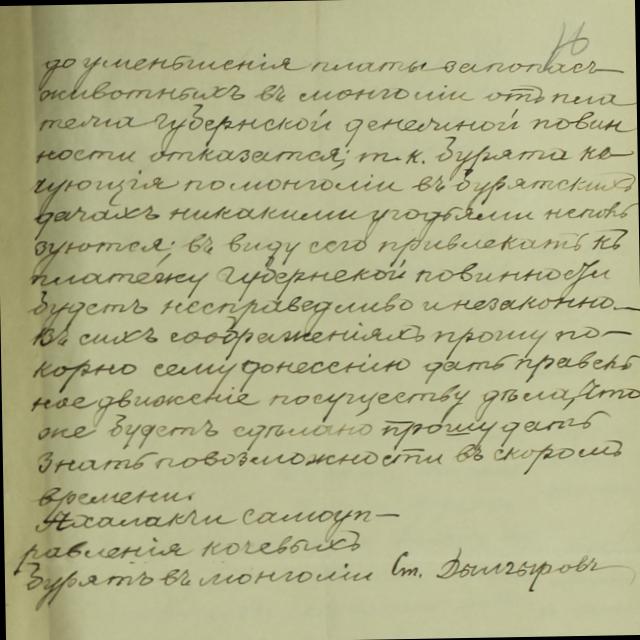 до уменьшенія платы за попасъ
животныхъ въ монголіи отъ пла
тежа Губернской денежной повин
ности отказатся; т. к. Бурята ко
чующія по монголіи въ Бурятскихъ
дачахъ никакими угодьями непольь
зуются; въ виду сего привлекать къ
платежу Губернской повинности
будетъ несправедливо и незаконно.
Въ сихъ соображеніяхъ прошу по-
корно сему донесенію дать правель
ное движеніе по существу дѣла, Что
же будетъ сдѣлано прошу дать
знать по возможности въ скоромъ
времени.
Ахалакчи самоуп-
равленія кочевыхъ
Бурятъ въ монголіи Ст. Дылгыровъ